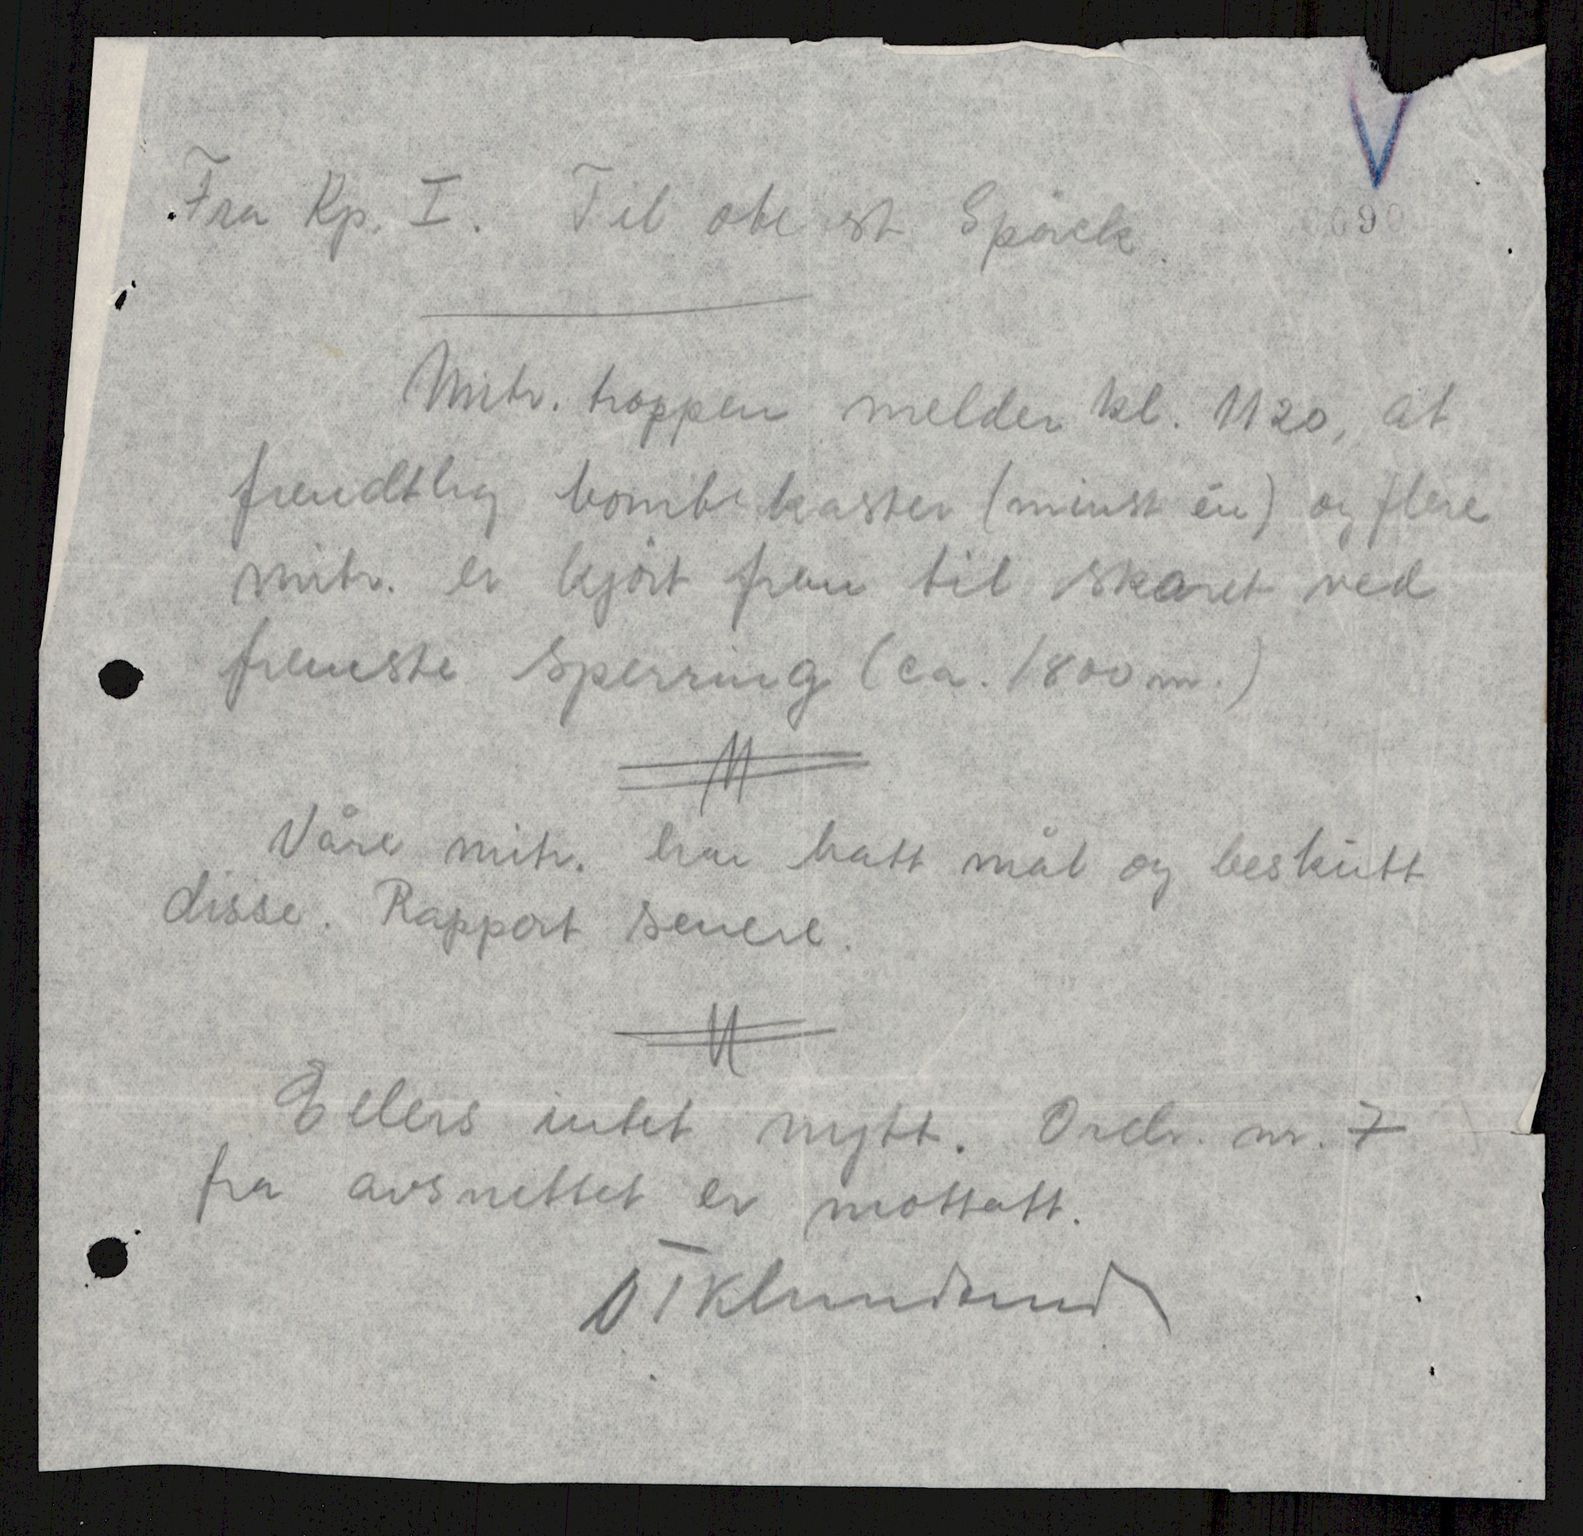 Fra Kp. I. Til oberst Spörck
0090
Mitr. troppen melder kl. 1120, at
fiendtlig bombekaster (minst én) og flere
mitr. er kjørt frem til skaret ved
fremste sperring (ca. 1800 m.)
Våre mitr. har hatt mål og beskutt
disse. Rapport senere.
Ellers intet nytt. Ordr. nr. 7
fra avsnittet er mottatt.